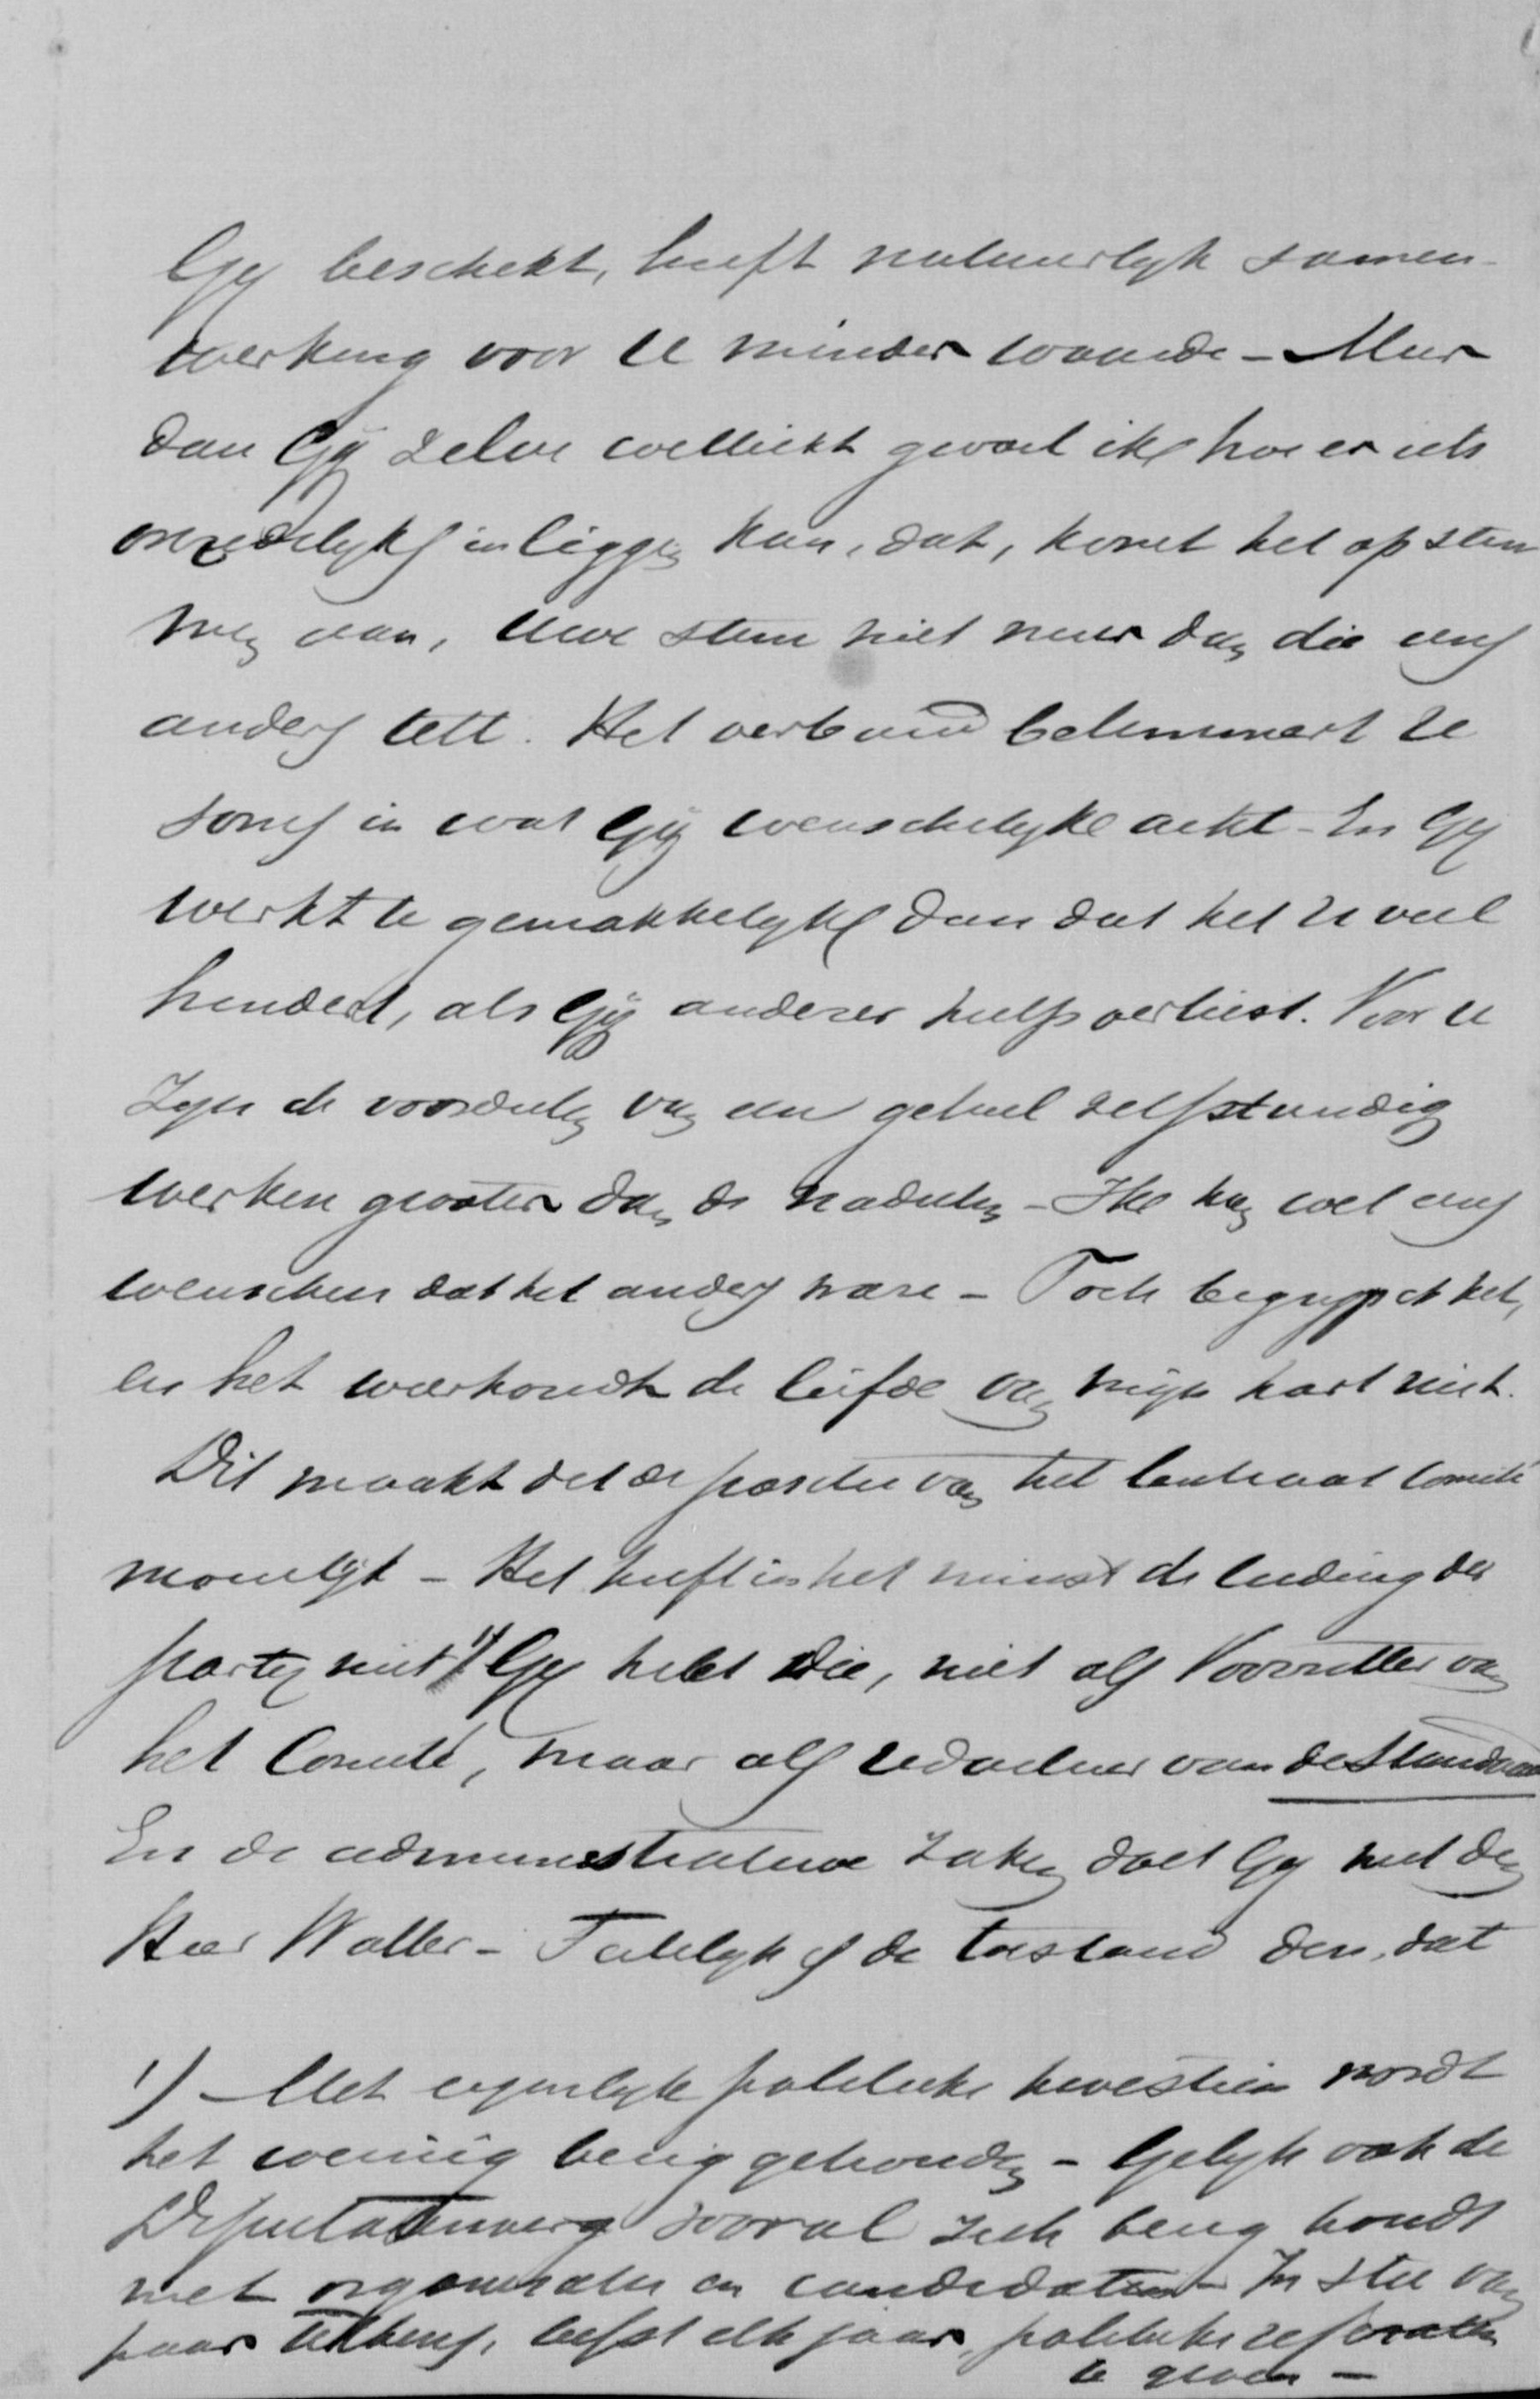 Gij beschikt, heeft natuurlyk samen-
werking voor U minder waarde - Meer
dan Gij zelve wellicht gevoel ik hoe er iets
onredelyks in liggen kan, dat, komt het op stem
men aan, Uwe stem niet meer dan die eens
anders telt. Het verband belemmert U
soms in wat Gij wenschelyk acht - En Gij
werkt te gemakkelyk dan dat het U veel
hindert, als Gij anderer hulp verliest. Voor U
zyn de voordeelen van een geheel zelfstandig
werken grooter dan de nadeelen - Ik kan wel eens
wenschen dat het anders ware - Toch begryp ik het,
en het weerhoudt de liefde van mijn hart niet.
Dit maakt dat de positie van het Centraal Comité
moeielijk - Het heeft in het minst de leiding der
party niet 1) Gij hebt die, niet als Voorzitter van
het Comité, maar als redacteur van de Standaard
En de administratieve zaken doet Gij met den
Heer Waller - Feitelyk is de toestand deze, dat
1) - Met eigenlyke politieke kwestien wordt
het weinig bezig gehouden - Gelyk ook de
Deputatenverg vooral zich bezig houdt
met organisatie en candidaten - In stee van
paar telkens, liefst elk jaar, politieke
te geven -